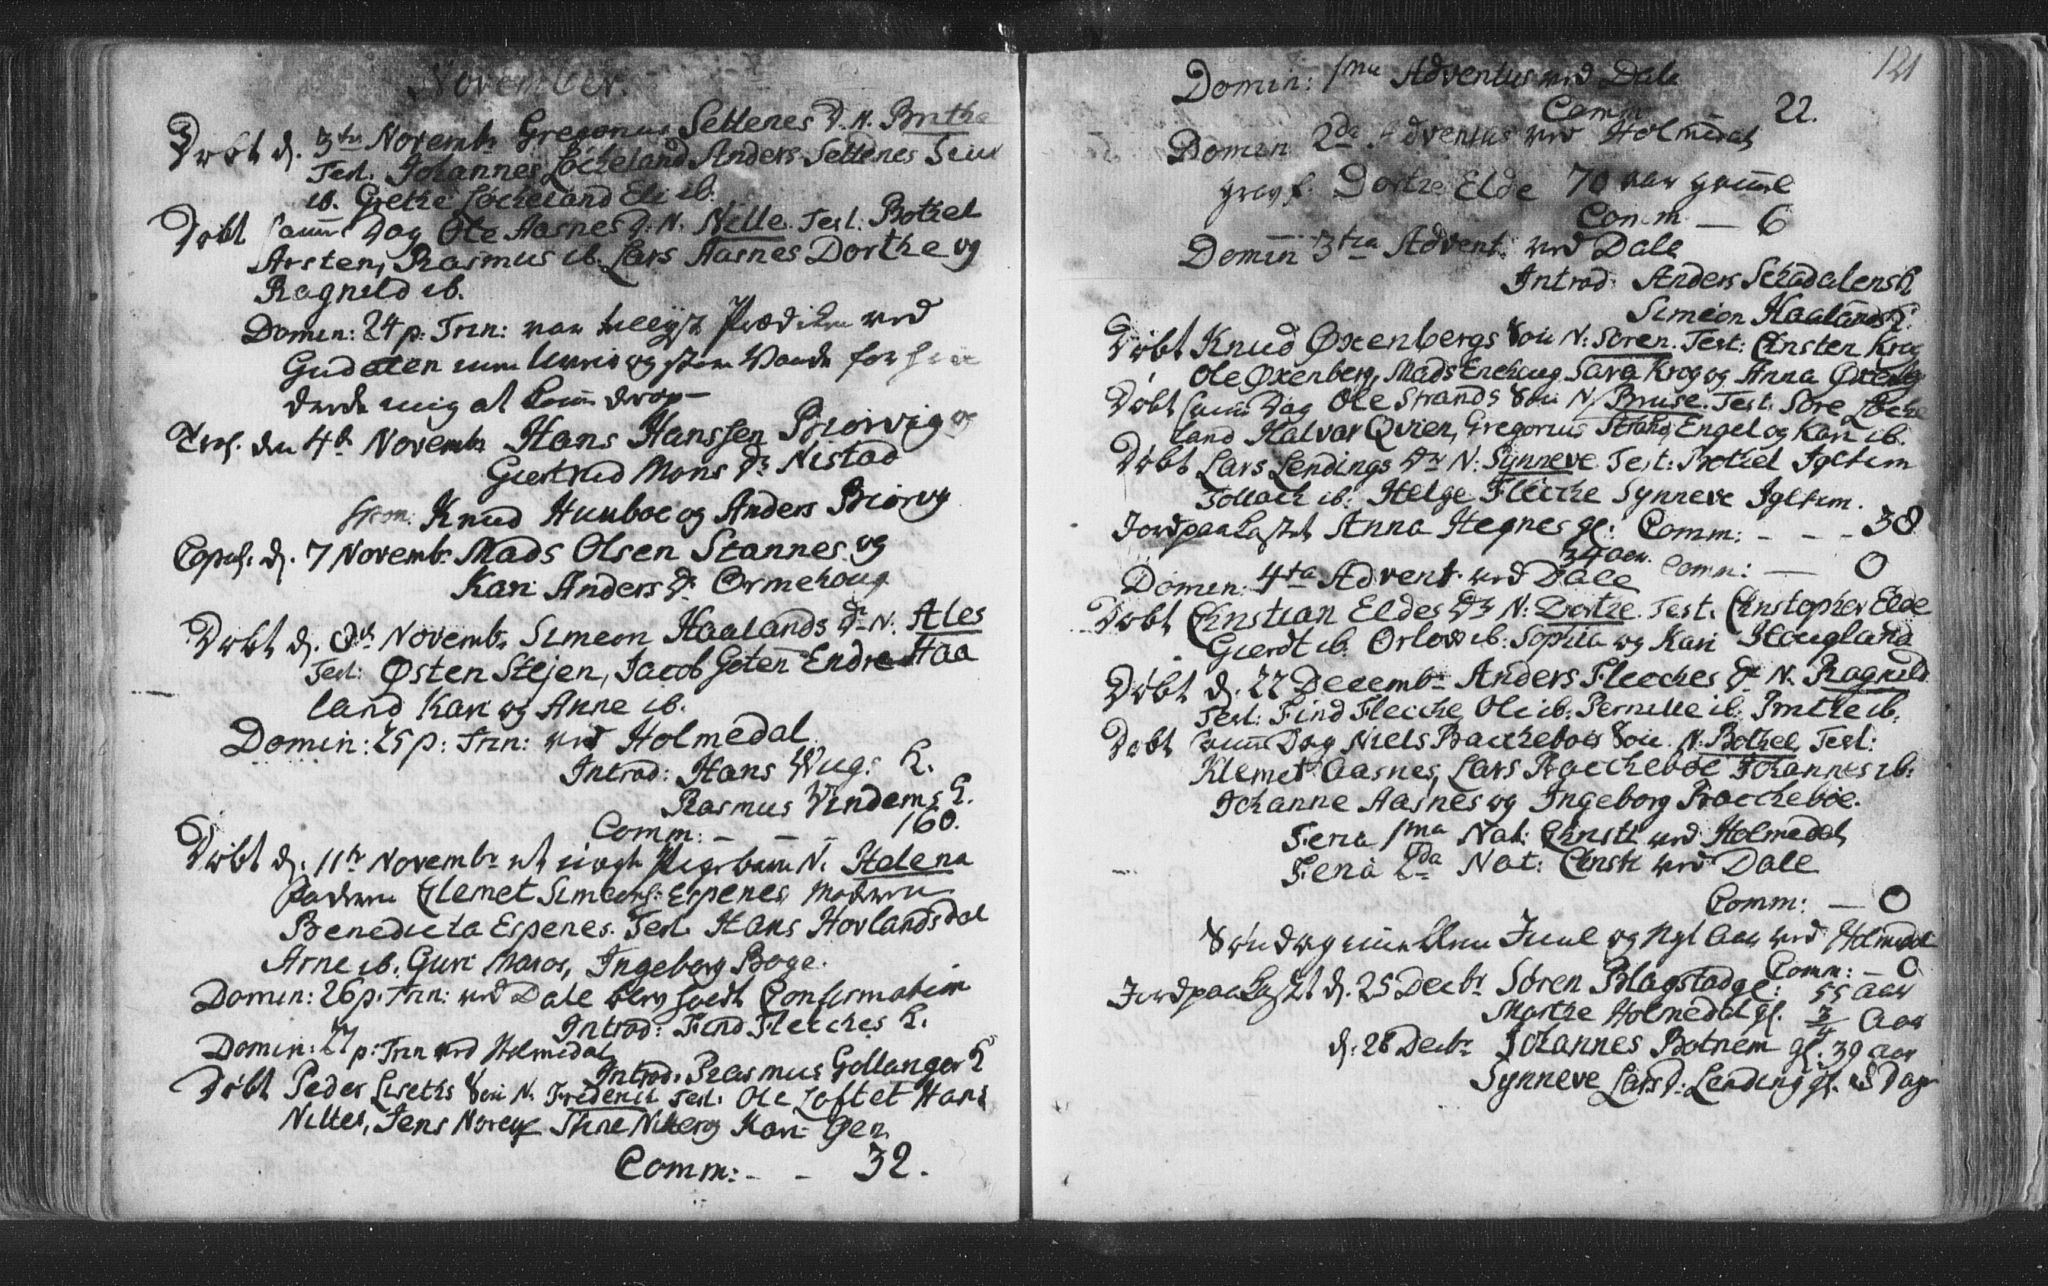 November.
Døbt d. 3die Novembr Gregorius Settenes D. N. Brithe
Test. Johannes Løcheland Anders Settenes
ib. Grethe Løcheland Eli ib.
Døbt samme Dag Ole Aasnes D. N. Nille. Test. Bothel
Arsten, Rasmus ib. Lars Aasnes Dorthe og
Ragnild ib.
Domin: 24 p. Trin: var Prædiken ved
og storm for
mig at
Trol. den 4de Novembr Hans Hanssen Biorvig og
Giertrud Mons Dr Nistad
Knud Huuboe og Anders Biorvig
Copul. d. 7 Novembr. Mads Olsen Stannes og
Kari Anders Dr. Ormehoug
Døbt d. Novembr Simeon Haalands Dr N. Ales
Test: Østen Stejen, Jacob Goten Endre Haa
land Kari og Anne ib.
Domin: 25 p: Trin: ved Holmedal
Introd: Hans K.
Rasmus Vindems K.
Comm: – – – 160.
Døbt d. 11te Novembr et Pigebarn N. Helena
Faderen Clemet Simeons: Espenes Moderen
Benedicta Espenes. Test. Hans Hovlandsdal
Arne ib. Guri Ingeborg Boge.
Domin: 26 p. Trin: ved Dale Confirmation
Introd: Find Fleches K.
Domin: 27 p: Trin ved Holmedal
Introd. Rasmus Gollanger K
Døbt Peder Liseths Søn N. Frederich Test: Ole Loftet Hans
Nilles, Jens Kari
Comm: – – 32.
121
Domin: 1ma Adventus ved Dale
Comm – 22.
Domin 2da Adventus ved Holmedal
Dorthe Elde 70 aar gammel
Comm – 6
Domin 3tia Advent: ved Dale
Introd: Anders Schadalens K
Simeon Haalands K.
Døbt Knud Øxenbergs Søn N: Soren. Test: Christen Krog
Ole Øxenberg, Mads Enehoug Sara Krog og Anna Øxenberg
Døbt samme Dag Ole Strands Søn N. Bruse. Test. Sore Løche
land Halvor Qvien, Gregorius Strand, Engel og Kari ib.
Døbt Lars Lendings Dr N: Synneve Test: Bothel Igletim
Tollach ib: Helge Fleche Synneve Igletim.
Jordpaakastet Anna Hegnes gl: Comm: – – – 38
34 aar. Comm: – 0
Domin: 4ta Advent. ved Dale
Døbt Christian Eldes Dr N: Dorthe. Test. Christopher Elde
Gierdt ib. Orlow ib: Sophia og Kari Hougland
Døbt d. 22 Decembr Anders Fleches Dr N. Ragnild.
Test: Find Fleche Ole ib: Pernille ib. Brithe ib.
Døbt samme Dag Niels Bacheboes Søn. N. Bothel Test:
Klemet Aasnes, Lars Bacheboe Johannes ib:
Johanne Aasnes og Ingeborg Bacheboe.
Feria 1ma Nat: Christi ved Holmedal
Feria 2da Nat: Christi ved Dale
Comm: – 0
Søndag mellem Juul og Nyt Aar ved Holmedal
Comm: – 0
Jordpaakastet d. 25 Decbr Søren Blagstad gl: 55 aar
Marthe Holmedal gl. 3/4 Aar
d. 28 Decbr Johannes Botnem gl. 39 aar
Synneve Lars D: Lending gl. 8 Dage